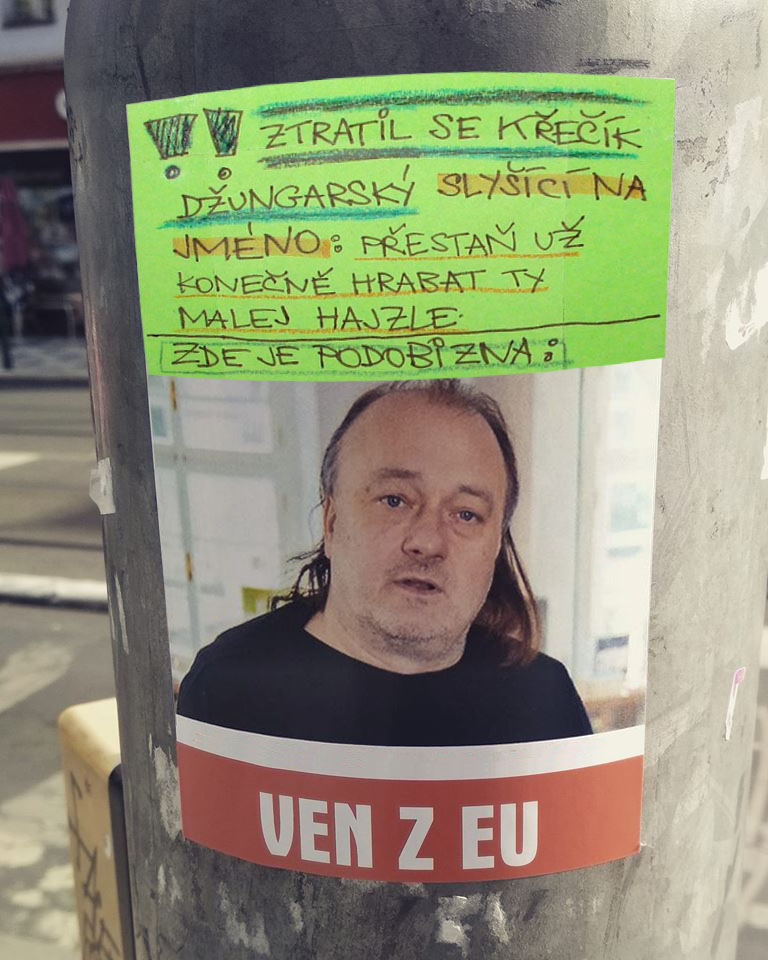 !! ZTRATIL SE KŘEČÍK
DŽUNGARSKÝ SLYŠÍCÍ NA
JMÉNO: PŘESTAŇ UŽ
KONEČNĚ HRABAT TY
MALEJ HAJZLE.
ZDE JE PODOBIZNA:
VEN Z EU